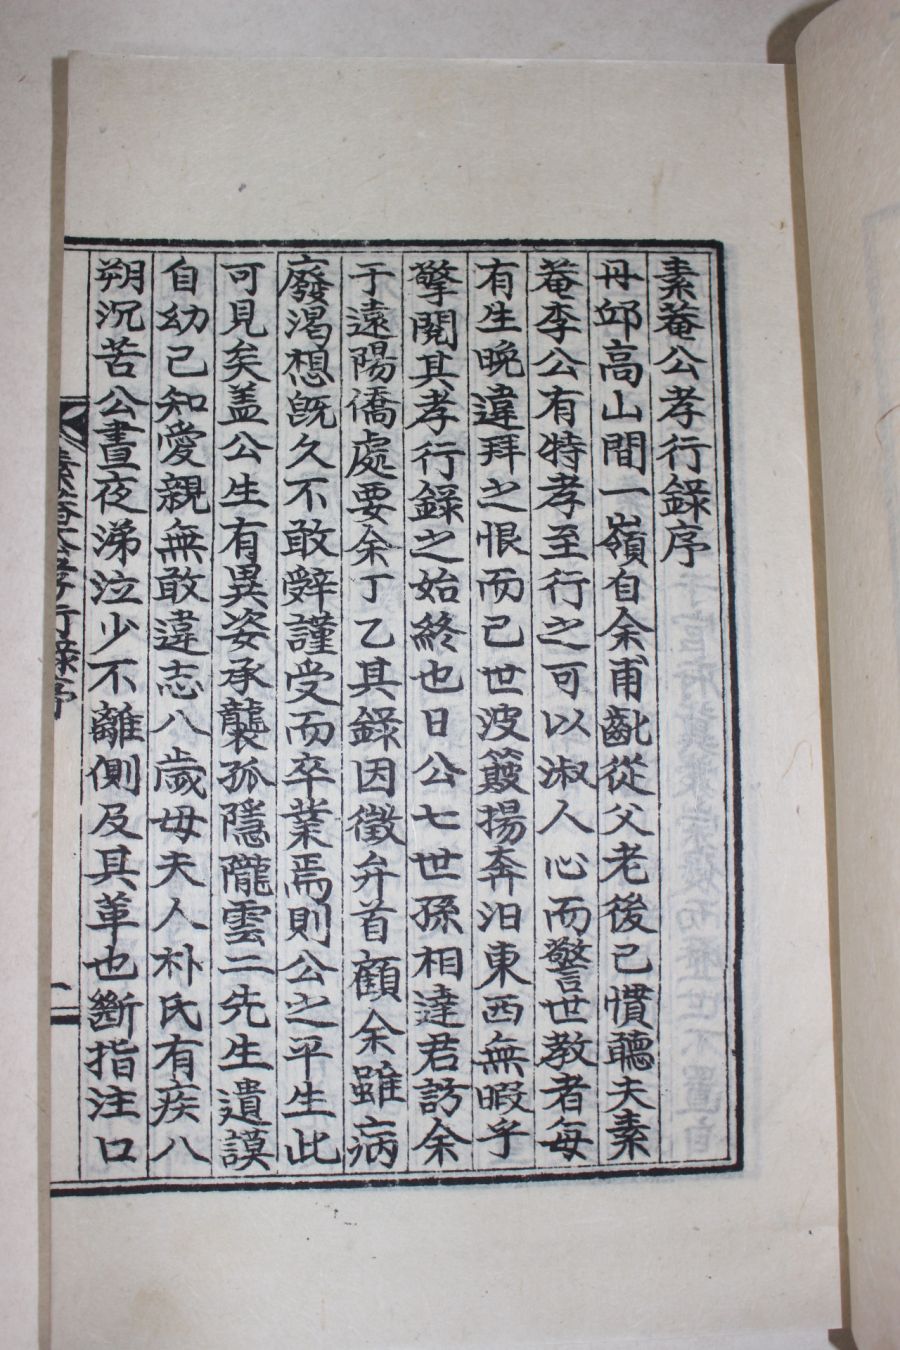 素菴公孝行錄序
丹邱高山間一嶺自余甫齔從父老後已慣聽夫素
菴李公有特孝至行之可以淑人心而警世教者每
有生晚違拜之恨而已世波簸揚奔汨東西無暇乎
擎閱其孝行錄之始終也日公七世孫相達君訪余
于遠陽僑處要余丁乙其錄因徵弁首顧余雖病
廢渴想旣久不敢辭謹受而卒業焉則公之平生此
可見矣盖公生有異姿承襲孤隱隴雲二先生遺謨
自幼已知愛親無敢違志八歲母夫人朴氏有疾八
朔沉苦公晝夜涕泣少不離側及其革也斷指注口
素菴公孝行錄序
一